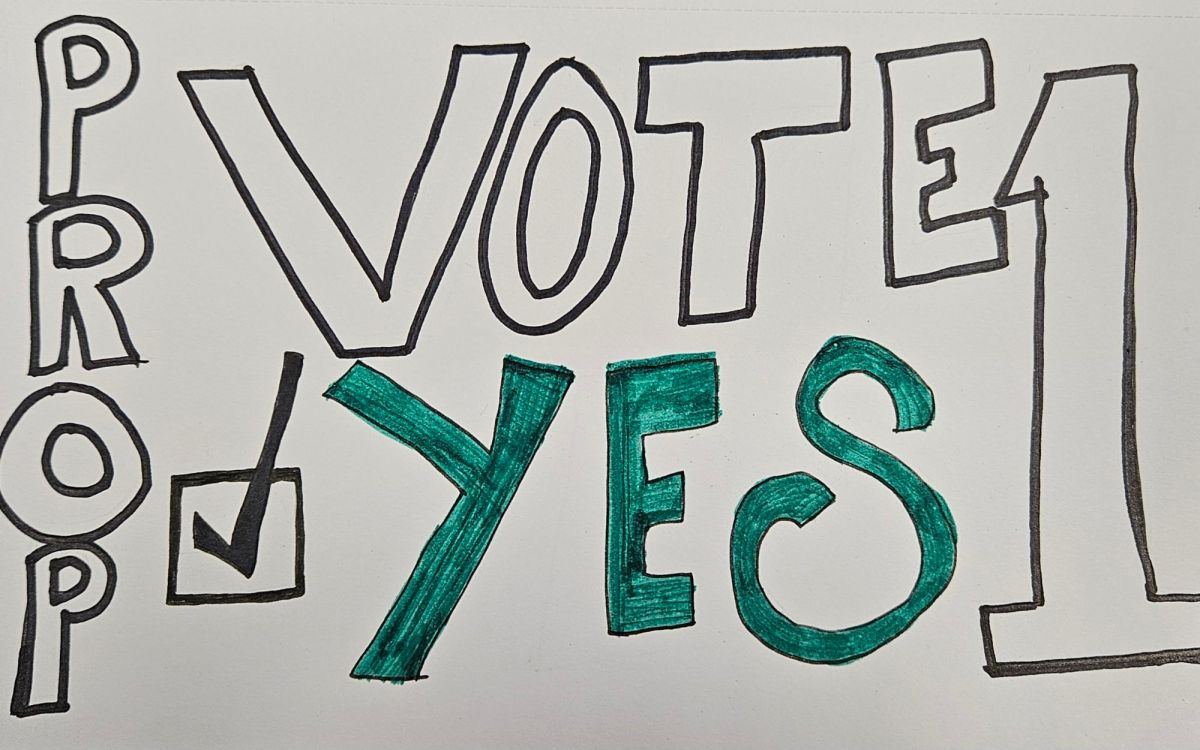 PROP
VOTE
YES
1